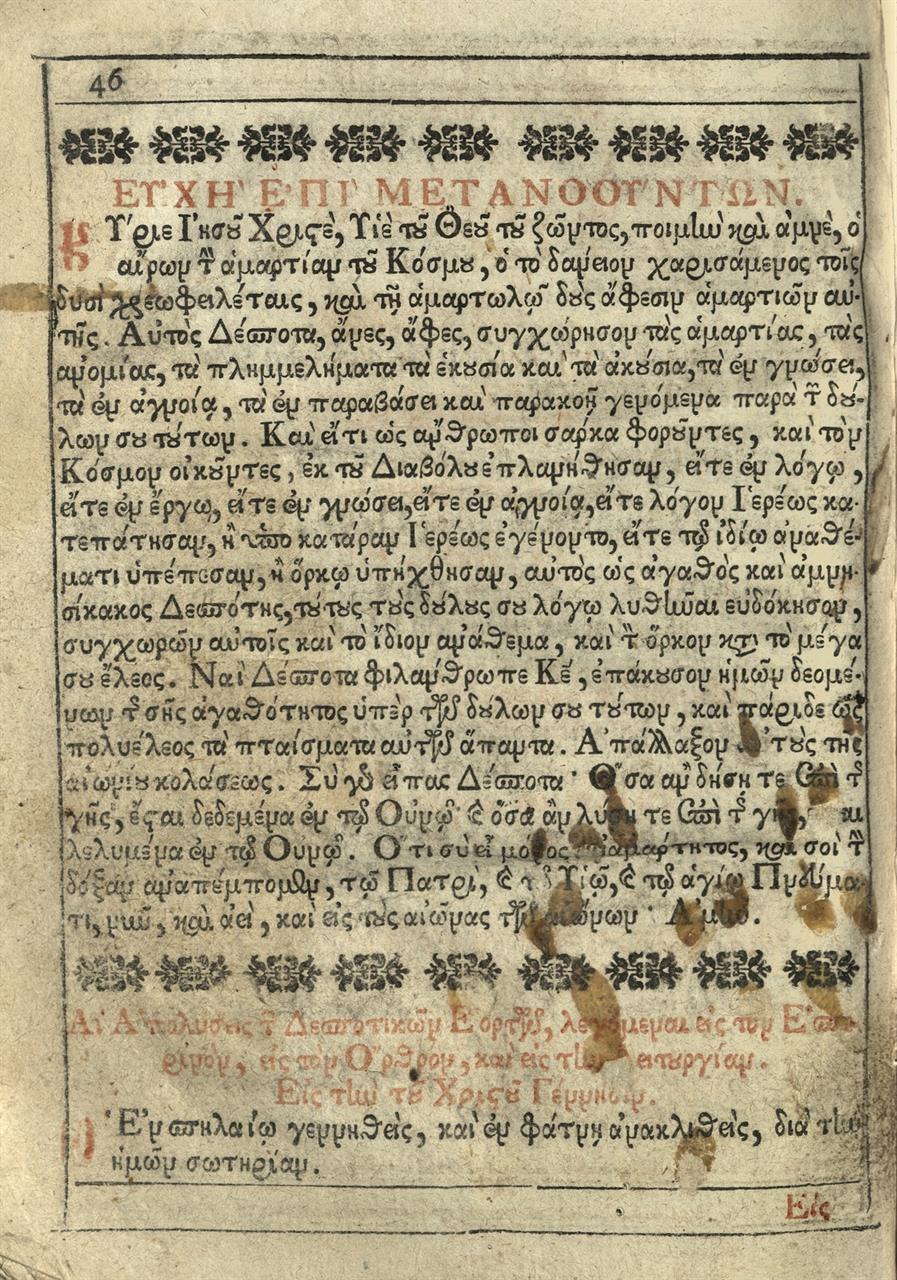 46
ΕΥ'ΧΗ' Ε'ΠΙ' ΜΕΤΑΝΟΟΥ'ΝΤΩΝ.
Κύριε Ἰησοῦ Χριστὲ, Υἱὲ τοῦ Θεοῦ τοῦ ζῶντος, ποιμὴν καὶ ἀμνὲ, ὁ
αἴρων τὴν ἁμαρτίαν τοῦ Κόσμου, ὁ τὸ δάνειον χαρισάμενος τοῖς
δυσὶ χρεωφειλέταις, καὶ τῇ ἁμαρτωλῷ δοὺς ἄφεσιν ἁμαρτιῶν αὐ-
τῆς. Αὐτὸς Δέσποτα, ἄνες, ἄφες, συγχώρησον τὰς ἁμαρτίας, τὰς
ἀνομίας, τὰ πλημμελήματα τὰ ἑκούσια καὶ τὰ ἀκούσια, τὰ ἐν γνώσει,
τὰ ἐν ἀγνοίᾳ, τὰ ἐν παραβάσει καὶ παρακοῇ γενόμενα παρὰ τῶν δού-
λων σου τούτων. Καὶ εἴτι ὡς ἄνθρωποι σάρκα φοροῦντες, καὶ τὸν
Κόσμον οἰκοῦντες, ἐκ τοῦ Διαβόλου ἐπλανήθησαν, εἴτε ἐν λόγῳ,
εἴτε ἐν ἔργῳ, εἴτε ἐν γνώσει, εἴτε ἐν ἀγνοίᾳ, εἴτε λόγον Ἱερέως κα-
τεπάτησαν, ἢ ὑπὸ κατάραν Ἱερέως ἐγένοντο, εἴτε τῷ ἰδίῳ ἀναθέ-
ματι ὑπέπεσαν, ἢ ὅρκῳ ὑπήχθησαν, αὐτὸς ὡς ἀγαθὸς καὶ ἀμνη-
σίκακος Δεσπότης, τούτους τοὺς δούλους σου λόγῳ λυθῆναι εὐδόκησον,
συγχωρῶν αὐτοῖς καὶ τὸ ἴδιον ἀνάθεμα, καὶ τὸν ὅρκον κατὰ τὸ μέγα
σου ἔλεος. Ναὶ Δέσποτα φιλάνθρωπε Κε, ἐπάκουσον ἡμῶν δεομέ-
νων τῆς σῆς ἀγαθότητος ὑπὲρ τῶν δούλων σου τούτων, καὶ πάριδε ὡς
πολυέλεος τὰ πταίσματα αὐτῶν ἅπαντα. Ἀπάλλαξον αὐτοὺς τῆς
αἰωνίου κολάσεως. Σὺ γὰρ εἶπας Δέσποτα· Ὅσα ἂν δήσητε ἐπὶ τῆς
γῆς, ἔσται δεδεμένα ἐν τῷ Οὐρνῷ· καὶ ὅσα ἂν λύσητε ἐπὶ τῆς γῆς, ἔσται
λελυμένα ἐν τῷ Οὐρνῷ. Ὅτι σὺ εἶ μόνος ἀναμάρτητος, καὶ σοὶ τὴν
δόξαν ἀναπέμπομεν, τῷ Πατρὶ, καὶ τῷ Υἱῷ, καὶ τῷ ἁγίῳ Πνεύμα-
τι, νῦν, καὶ ἀεὶ, καὶ εἰς τοὺς αἰῶνας τῶν αἰώνων· Ἀμήν.
Αἱ Ἀπολύσεις τῶν Δεσποτικῶν Ἑορτῶν, λεγόμεναι εἰς τὸν Ἑσπε-
ρινὸν, εἰς τὸν Ὄρθρον, καὶ εἰς τὴν Λειτουργίαν.
Εἰς τὴν τοῦ Χριστοῦ Γέννησιν.
Ὁ Ἐν σπηλαίῳ γεννηθεὶς, καὶ ἐν φάτνῃ ἀνακλιθεὶς, διὰ τὴν
ἡμῶν σωτηρίαν.
Εἰς